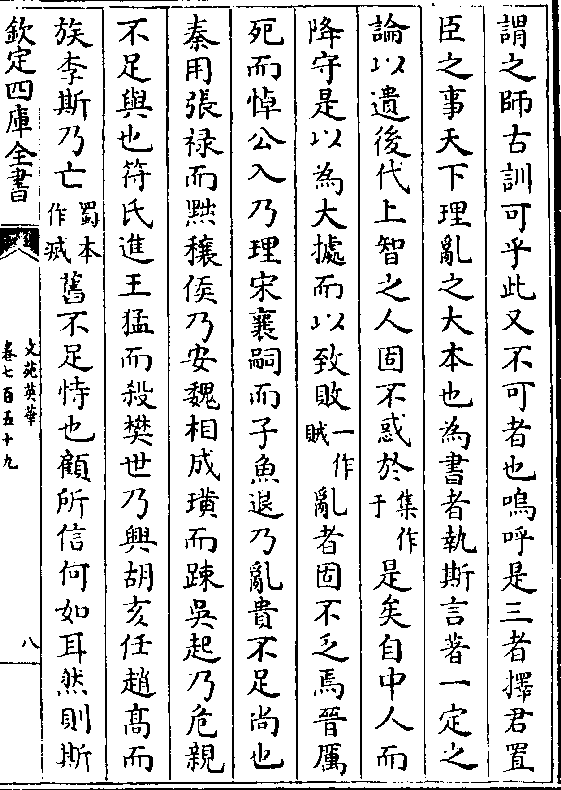 謂之師古訓可乎此又不可者也嗚呼是三者擇君置
臣之事天下理亂之大本也為書者執斯言著一定之
論以遺後代上智之人固不惑於集作于是矣自中人而
降守是以為大據而以致敗一作賊亂者固不乏焉晉厲
死而悼公入乃理宋襄嗣而子魚退乃亂貴不足尚也
秦用張禄而黜穰侯乃安魏相成璜而踈吳起乃危親
不足與也符氏進王猛而殺樊世乃興胡亥任趙髙而
族李斯乃亡蜀本作滅舊不足恃也顧所信何如耳然則斯
欽定四庫全書
文苑英華
卷七百五十九
八